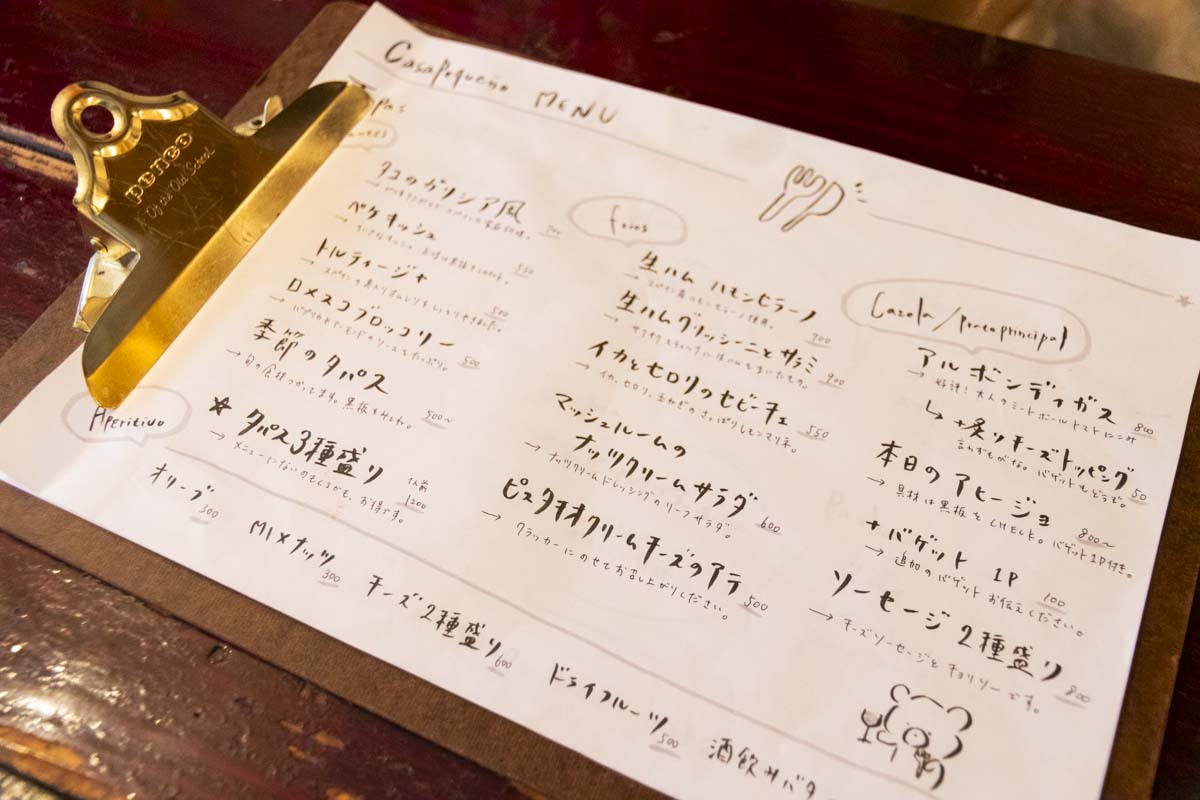 CasaPequeño MENU
penco
Of the Old School
タコのガリシア風
ペケキッシュ
550
トルティージャ
500
ロメスコブロッコリー
→ パプリカやアーモンドのソースをたっぷり。
500
季節のタパス
→ 旬の食材つかってます。黒板をみてね。
500~
☆ タパス3種盛り 1人前
→ メニューにないのもくるかも、お得です。
1200
frios
生ハム ハモンセラーノ
900
生ハムグリッシーニとサラミ
900
イカとセロリのセビーチェ
→ イカ、セロリ、玉ねぎのさっぱりレモンマリネ。
550
マッシュルームの
ナッツクリームサラダ
→ ナッツクリームドレッシングのリーフサラダ。
600
ピスタチオクリームチーズのアテ
→ クラッカーにのせてお召し上がりください。
500
Cazola/Platoprincipal
アルボンディガス
→ 好評!大人のミートボールトマトに
800
↳ +炙りチーズトッピング
言わずもがな。バゲットもどうぞ。
50
本日のアヒージョ
800~
→ 具材は黒板をCHECK。バゲット1P付き。
+バゲット 1P
100
→ 追加のバゲット お伝えください。
ソーセージ2種盛り
→ チーズソーセージとチョリソーです。
800
Aperitivo
オリーブ
300
MIXナッツ
300
チーズ2種盛り
600
ドライフルーツ
500
酒飲みバタ